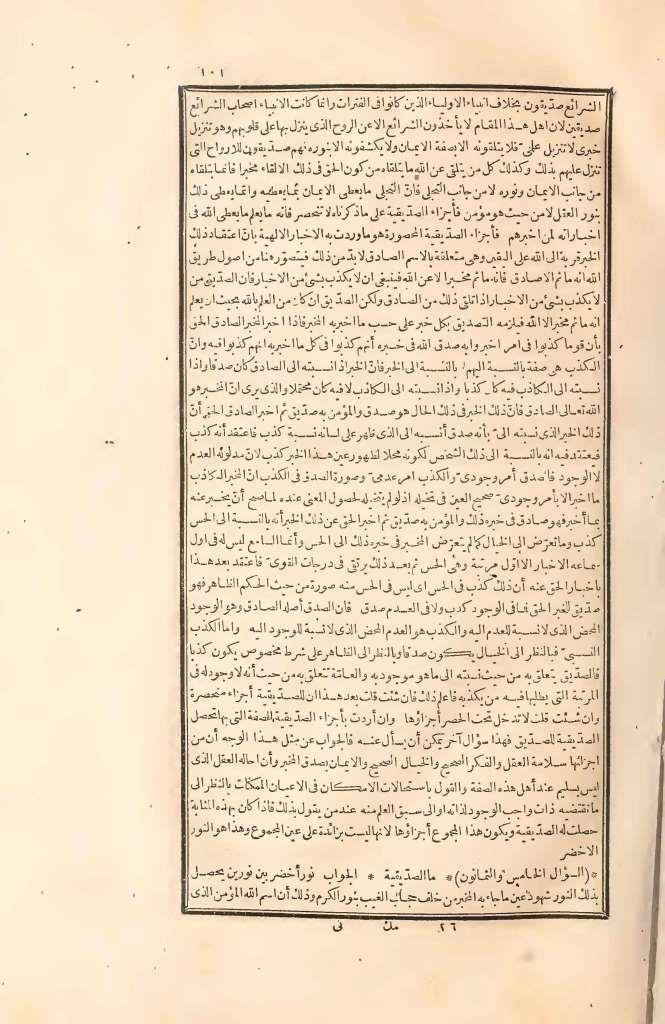 ١٠١
الشرائع صديقون بخلاف انبياء الاولياء الذين كانوا فى الفترات وانما كانت الانبياء أصحاب الشرائع
صديقين لان أهل هذا المقام لا يأخذون الشرائع الا عن الروح الذى ينزل بها على قلوبهم وهو تنزيل
خبرى لا تنزيل علمى فلا يتلقونه الا بصفة الايمان ولا يكشفونه الا بنوره فهم صديقون للارواح التى
تنزل عليهم بذلك وكذلك كل من يتلقى عن الله ما يتلقاه من كون الحق فى ذلك الالقاء مخبرا فانما يتلقاه
من جانب الايمان ونوره لا من جانب التجلى فان التجلى ما يعطى الايمان بما يعطيه وانما يعطى ذلك
بنور العقل لا من حيث هو مؤمن فأجزاء الصديقية على ما ذكرناه لا تنحصر فانه ما يعلم ما يعطى الله فى
اخباراته لمن اخبرهم فأجزاء الصديقية المحصورة هو ما وردت به الاخبار الالهية بان اعتقاد ذلك
الخبر قربة الى الله على التعيين وهى متعلقة بالاسم الصادق لا بد من ذلك فيتصور هنا من اصول طريق
الله انه ما ثم الا صادق فانه ما ثم مخبر الا عن الله فينبغى ان لا يكذب بشئ من الاخبار فان الصديق من
لا يكذب بشئ من الاخبار اذا تلقى ذلك من الصادق ولكن الصديق ان كان من العلم بالله بحيث ان يعلم
انه ما ثم مخبر الا الله فيلزمه التصديق بكل خبر على حسب ما اخبر به المخبر فاذا اخبر المخبر الصادق الحق
بأن قوما كذبوا فى أمر اخبروا به صدق الله فى خبره أنهم كذبوا فى كل ما اخبر به انهم كذبوا فيه وان
الكذب هى صفة بالنسبة اليهم لا بالنسبة الى الخبر فان الخبر اذا نسبته الى الصادق كان صدقا واذا
نسبته الى الكاذب فيه كان كذبا واذا نسبته الى الكاذب لا فيه كان محتملا والذى يرى ان المخبر هو
الله تعالى الصادق فان ذلك الخبر فى ذلك الحال هو صدق والمؤمن به صديق ثم اخبر الصادق الحق أن
ذلك الخبر الذى نسبته الى بأنه صدق أنسبه الى الذى ظهر على لسانه نسبة كذب فاعتقد أنه كذب
فيعتقد فيه انه بالنسبة الى ذلك الشخص لكونه محلا لظهور عين هذا الخبر كذب لان مدلوله العدم
لا الوجود فالصدق أمر وجودى والكذب امر عدمى وصورة الصدق فى الكذب ان المخبر الكاذب
ما اخبر الا بأمر وجودى صحيح العين فى تخيله اذ لو لم يتخيله لحصول المعنى عنده لما صح أن يخبر عنه
بما أخبر فهو صادق فى خبره ذلك والمؤمن به صديق ثم اخبر الحق عن ذلك الخبر أنه بالنسبة الى الحس
كذب وما تعرض الى الخيال كما لم يتعرض المخبر فى خبره ذلك الى الحس وانما السامع ليس له فى اول
سماعه الاخبار الا اول مرتبة وهى الحس ثم بعد ذلك يرتقى فى درجات القوى فاعتقد بعد هذا
باخبار الحق عنه أن ذلك كذب فى الحس اى ليس فى الحس منه صورة من حيث الحكم الظاهر فهو
صديق للخبر الحق فما فى الوجود كذب ولا فى العدم صدق فان الصدق أصله الصادق وهو الوجود
المحض الذى لا نسبة للعدم اليه والكذب هو العدم المحض الذى لا نسبة للوجود اليه واما الكذب
النسبى فبالنظر الى الخيال يكون صدقا وبالنظر الى الظاهر على شرط مخصوص يكون كذبا
فالصديق يتعلق به من حيث نسبته الى ما هو موجود به والعامّة تتعلق به من حيث أنه لا وجود له فى
المرتبة التى يطلبها فيه من يكذبه فاعلم ذلك فان شئت قلت بعد هذا ان للصديقية أجزاء منحصرة
وان شئت قلت لا تدخل تحت الحصر أجزاؤها وان أردت بأجزاء الصديقية الصفة التى بها تحصل
الصديقية للصديق فهذا سؤال آخر يمكن أن يسأل عنه فالجواب عن مثل هذا الوجه أن من
اجزائها سلامة العقل والفكر الصحيح والخيال الصحيح والايمان بصدق المخبر وان احاله العقل الذى
ليس بسليم عند أهل هذه الصفة والقول باستحالات الامكان فى الاعيان الممكنات بالنظر الى
ما تقتضيه ذات واجب الوجود لذاته او الى سبق العلم منه عند من يقول بذلك فاذا كان بهذه المثابة
حصلت له الصديقية ويكون هذا المجموع أجزاؤها لانها ليست بزائدة على عين المجموع وهذا هو النور
الاخضر
* (السؤال الخامس والثمانون) * ما الصديقية * الجواب نور أخضر بين نورين يحصل
بذلك النور شهود عين ما جاء به المخبر من خلف حجاب الغيب بنور الكرم وذلك أن اسم الله المؤمن الذى
٢٦ مك نى